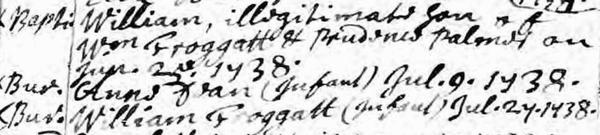 Bapt. William, illegitimate son of
Wm Froggatt & Prudence Palmer on
Jun. 1738.
Bur. Anne Dean (Infant) Jul. 9. 1738.
Bur. William Froggatt (Infant) Jul. 27. 1738.